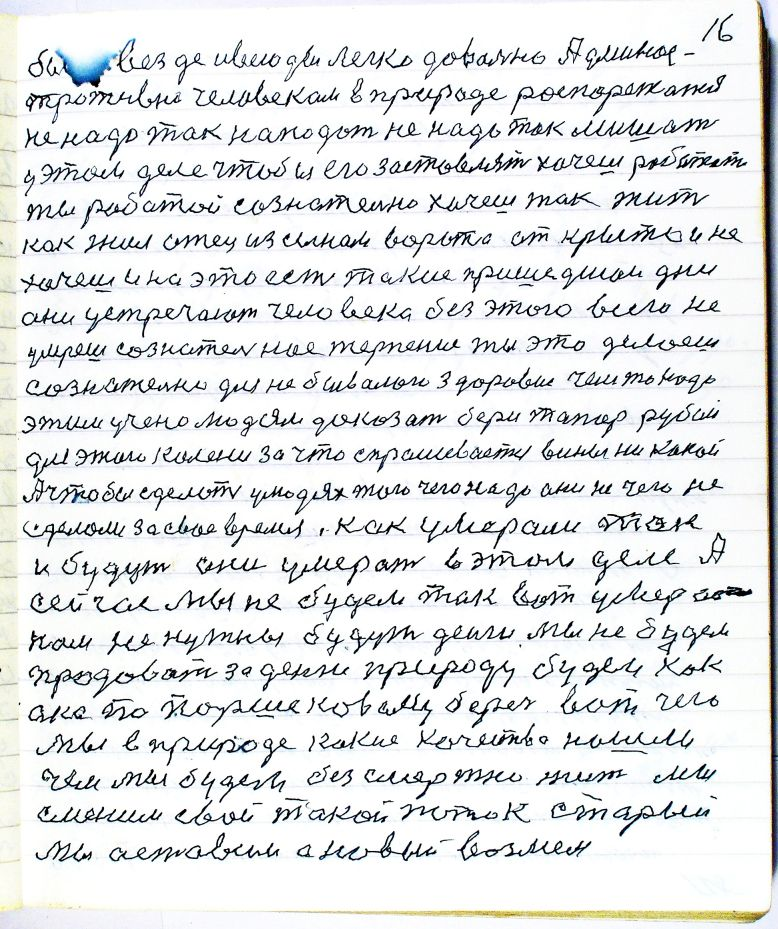 16
везде и всюду легко довално Админис-
тротивна человекам в природе роспорежатя
не надо так находит не надо так мишат
у этом деле чтобы его застовлят хочеш работат
ты работой сознателно хочеш так жит
как жил отец из сынам ворыта открыто и не
хочеш и на это ест такие пришедшои дни
ани устречают человека без этого всего не
умреш сознателное терпение ты это делоеш
сознателно для небывалого здоровия чем то надо
этим учено людям доказат бери тапор рубай
для этого колени за что спрашевается вины никокой
А чтобы сделоть у людях того чего надо ани не чего не
сделоли за свое время, как умерали так
и будут ани умерат в этом деле А
сейчас мы не будем так вот умерат
нам не нужны будут денги мы не будем
продоват за денги природу будем как
ана по Поршековаму берег вот чего
мы в природе какие качества нашли
чем мы будем безсмертно жит мы
сменим свой такой поток старый
мы аставим а новый возмем